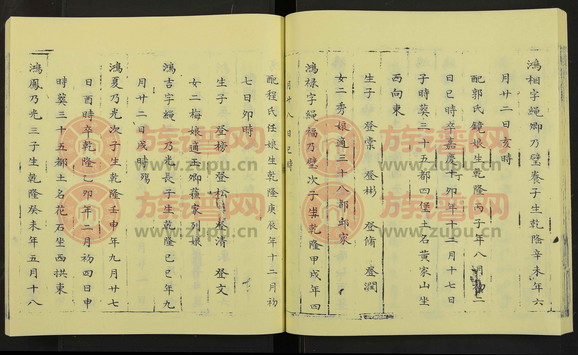 鴻相字䋲卿乃璧長子生乾隆辛未年六
月廿二日亥時
配郭氏鏡娘生乾隆丙子年八月
日巳時卒嘉慶十二月十七日
子時葵三十五都四堡土名黃家山坐
西向東
生子 登崇 登彬 登脩 登潤
女二秀娘通三十八都邱家
鴻祿字䋲福乃璧次子生乾隆甲戌年四
月廿八日巳時
配程氏任娘生乾隆庚辰年十二月初
七日卯時
生子 登榜 登松 登清 登文
女二梅娘適孟卿蘓家列娘
鴻吉字䋲 乃光長子生乾隆己巳年九
月廿二日戌時殤
鴻夏乃光次子生乾隆壬申年九月廿七
日酉時卒乾隆乙卯年二月初四日申
時葵三十五都土名花石坐西拱東
鴻鳳乃光三子生乾隆癸未年五月十八
族譜網
www.zupu.cn
族譜網
www.zupu.cn
族譜網
www.zupu.cn
族譜網
www.zupu.cn